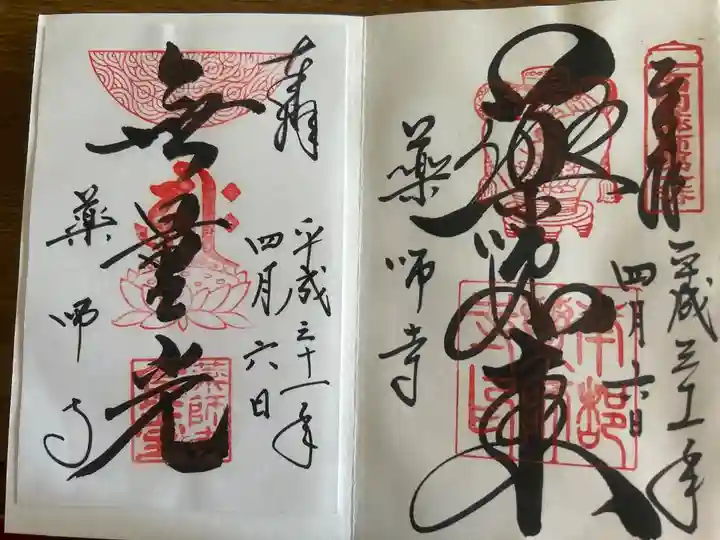 奉拝
平成三十一年
四月六日
薬師如来
薬師寺
奉拝
平成三十一年
四月六日
無量光
薬師寺